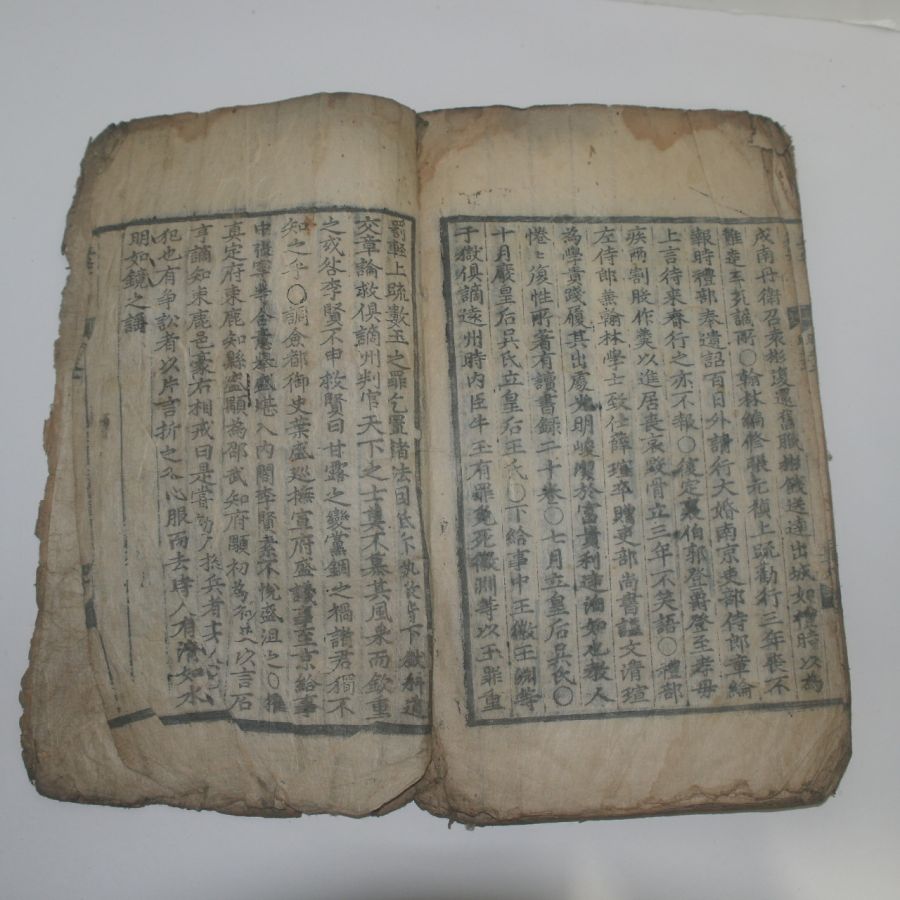 戍南丹衛召袁彬復還舊職彬餞送達出城如禮時以為
報時禮部奉遺詔百日外請行大婚南京吏部侍郎章綸
上言待來春行之亦不報〇復定襄伯郭登爵登至孝母
疾兩割股作羹以進居喪哀毀骨立三年不笑語〇禮部
左侍郎兼翰林學士致仕薛瑄卒贈吏部尚書謚文清瑄
為學貴踐履其出處光明峻潔於富貴利達泊如也教人
惓惓復性所著有讀書錄二十卷〇七月立皇后吳氏〇
十月廢皇后吳氏立皇后王氏〇下給事中王徽王淵等
于獄俱謫遠州時内臣牛王有罪免死徽淵等以王罪重
罰輕上疏數玉之罪乞置諸法
交章論救俱謫州判官天下之士莫不慕其風采而欽重
之或咎李賢不申救賢曰甘露之變黨錮之禍諸君獨不
知之乎〇調僉都御史葉盛巡撫宣府盛議事至京給事
入内閣李賢素不悅盛沮之〇推
真定府束鹿知縣盛顒為邵武知府顒初為 以言居
言謫知束鹿邑豪右相戒曰是嘗
犯也有爭訟者以片言折之 心服而去時人有清如水
明如鏡之謠